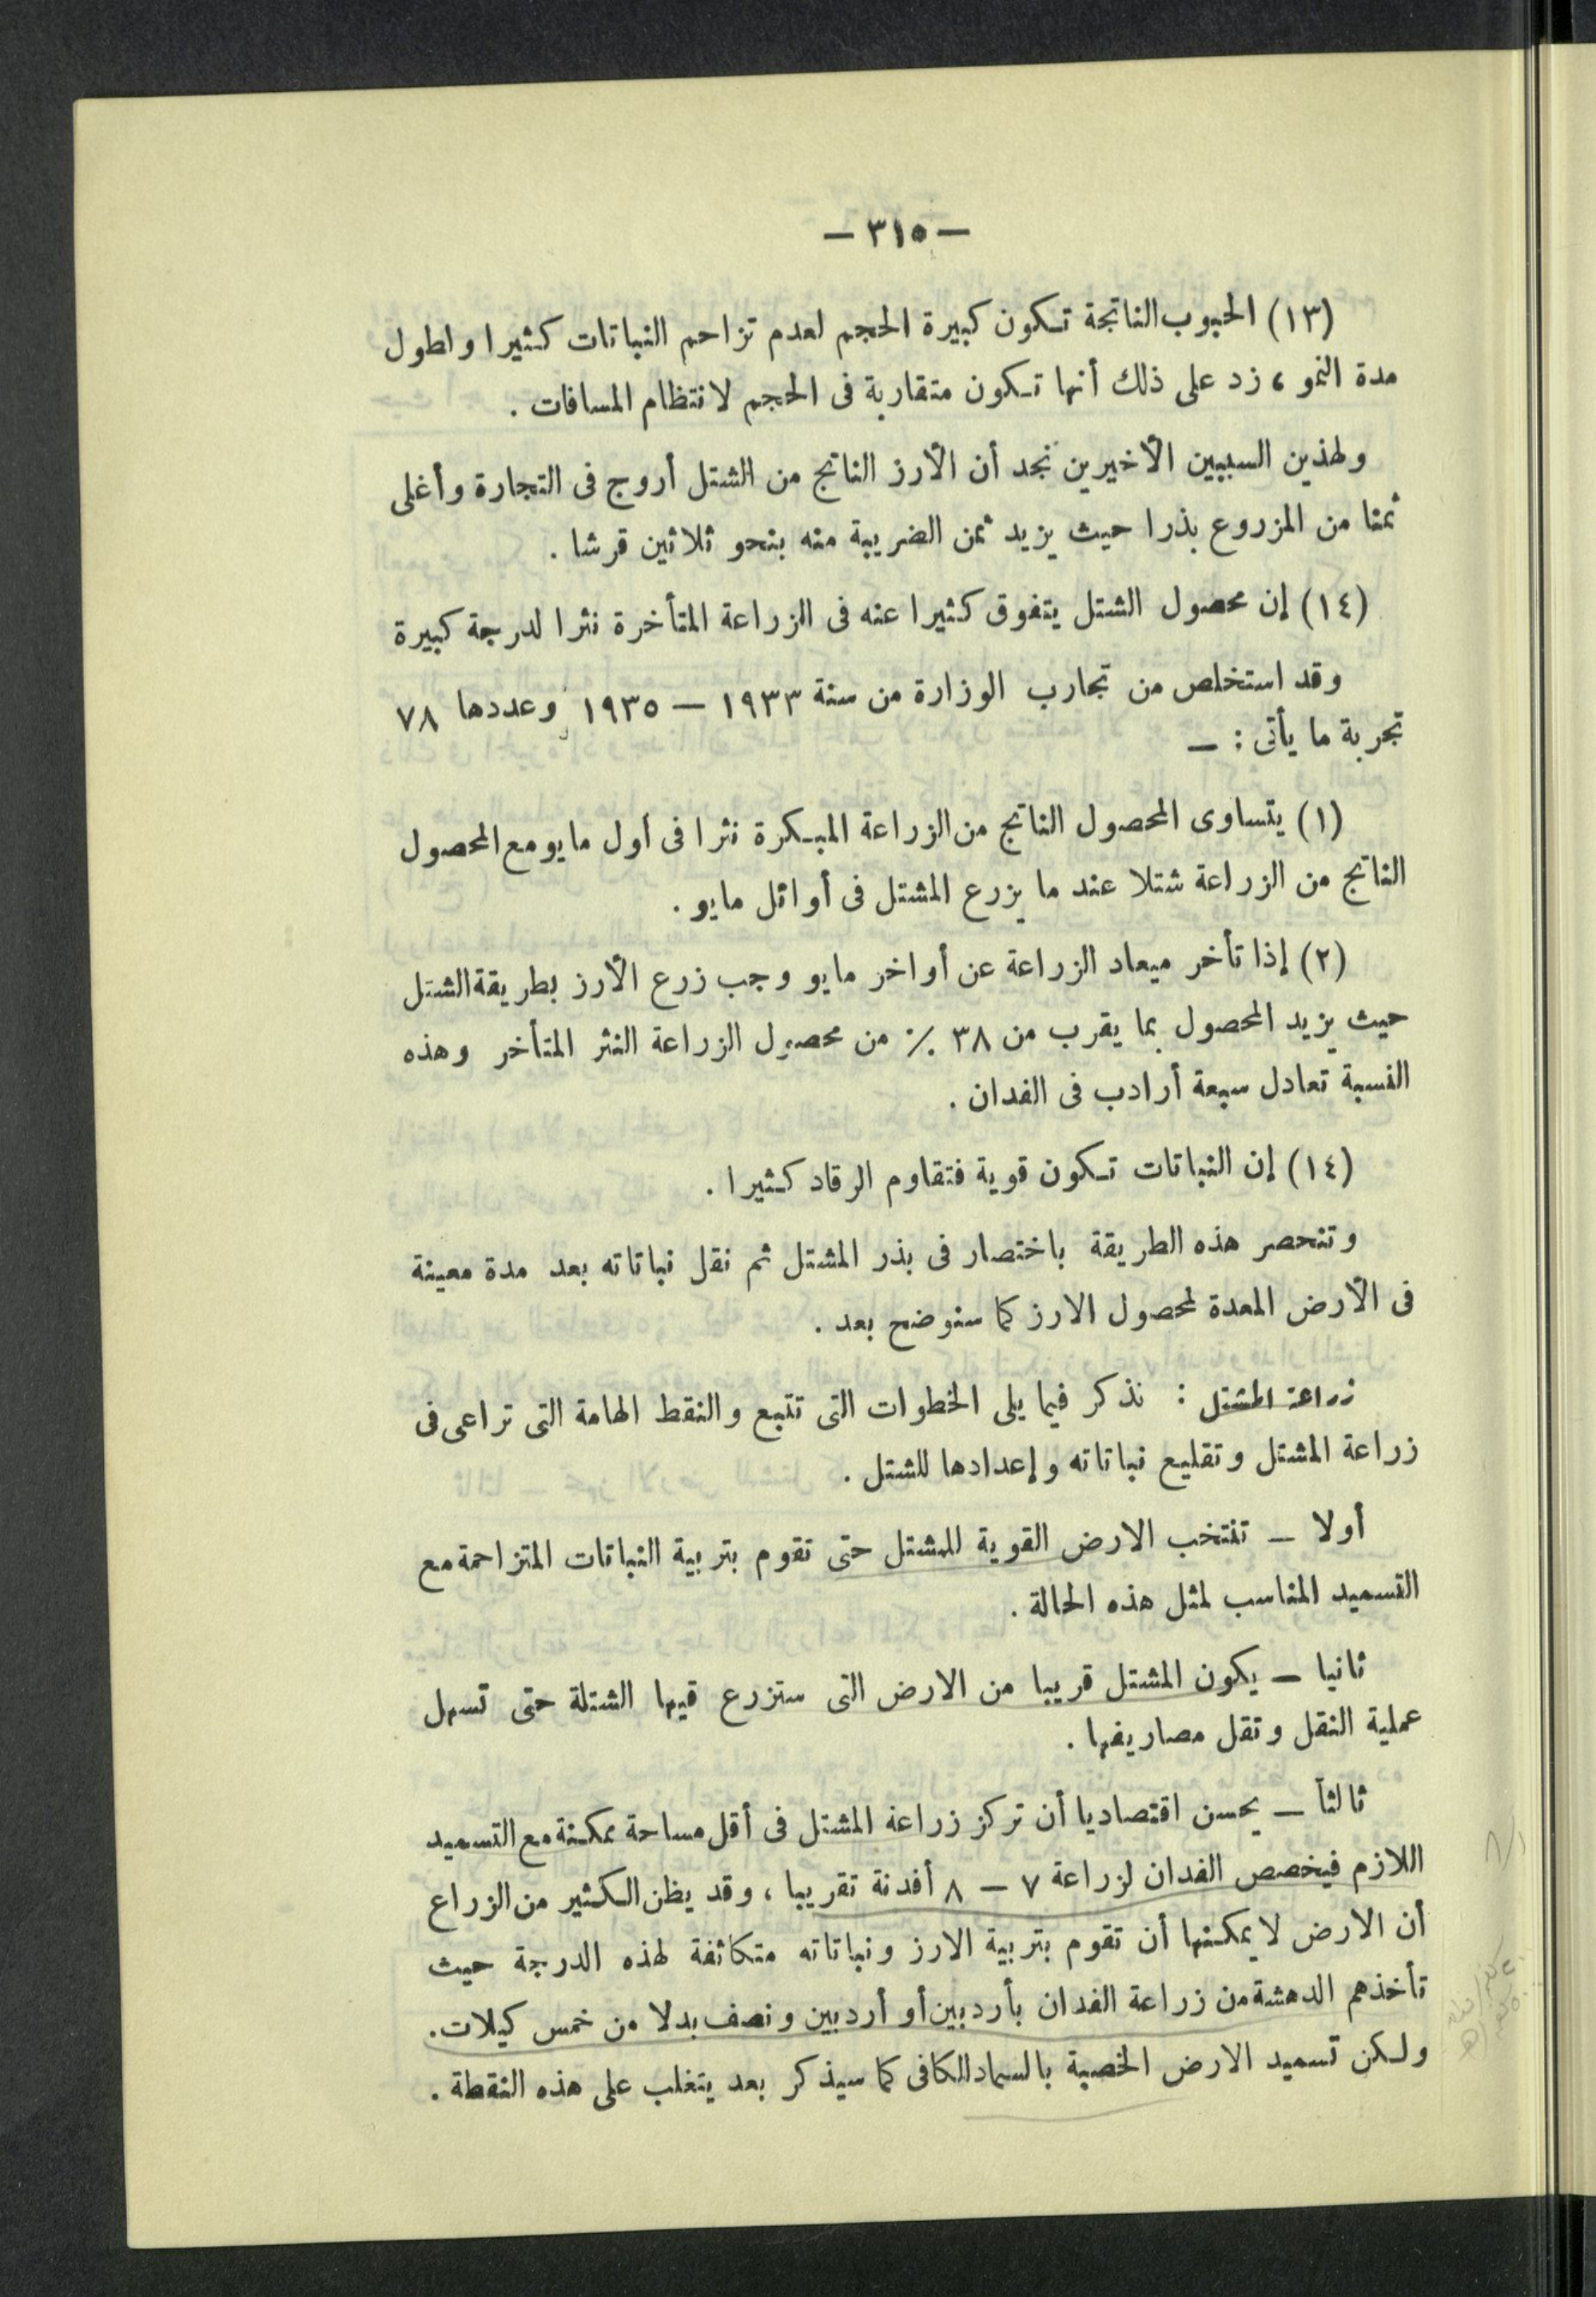 — ٣١٥ —
(١٣) الحبوب الناتجة تكون كبيرة الحجم لعدم تزاحم النباتات كثيرا ولطول
مدة النمو ، زد على ذلك أنها تكون متقاربة فى الحجم لانتظام المسافات .
ولهذين السببين الأخيرين نجد أن الأرز الناتج من الشتل أروج فى التجارة وأغلى
ثمنا من المزروع بذرا حيث يزيد ثمن الضريبة منه بنحو ثلاثين قرشا .
(١٤) إن محصول الشتل يتفوق كثيرا عنه فى الزراعة المتأخرة نثرا لدرجة كبيرة
وقد استخلص من تجارب الوزارة من سنة ١٩٣٣ — ١٩٣٥ وعددها ٧٨
تجربة ما يأتى : —
(١) يتساوى المحصول الناتج من الزراعة المبكرة نثرا فى أول مايو مع المحصول
الناتج من الزراعة شتلا عند ما يزرع المشتل فى أوائل مايو .
(٢) إذا تأخر ميعاد الزراعة عن أواخر مايو وجب زرع الأرز بطريقة الشتل
حيث يزيد المحصول بما يقرب من ٣٨ ٪ من محصول الزراعة النثر المتأخر وهذه
النسبة تعادل سبعة أرادب فى الفدان .
(١٤) إن النباتات تكون قوية فتقاوم الرقاد كثيرا .
وتنحصر هذه الطريقة باختصار فى بذر المشتل ثم نقل نباتاته بعد مدة معينة
فى الأرض المعدة لمحصول الارز كما سنوضح بعد .
زراعة المشتل : نذكر فيما يلى الخطوات التى تتبع والنقط الهامة التى تراعى فى
زراعة المشتل وتقليع نباتاته وإعدادها للشتل .
أولا — تنتخب الارض القوية للمشتل حتى تقوم بتربية النباتات المتزاحمة مع
التسميد المناسب لمثل هذه الحالة .
ثانيا — يكون المشتل قريبا من الارض التى ستزرع قيها الشتلة حتى تسهل
عملية النقل وتقل مصاريفها .
ثالثاً — يحسن اقتصاديا أن تركز زراعة المشتل فى أقل مساحة ممكنة مع التسميد
اللازم فيخصص الفدان لزراعة ٧ — ٨ أفدنة تقريبا ، وقد يظن الكثير من الزراع
أن الارض لا يمكنها أن تقوم بتربية الارز ونباتاته متكاثفة لهذه الدرجة حيث
تأخذهم الدهشة من زراعة الفدان بأردبين أو أردبين ونصف بدلا من خمس كيلات .
ولكن تسميد الارض الخصبة بالسماد الكافى كما سيذكر بعد يتغلب على هذه النقطة .